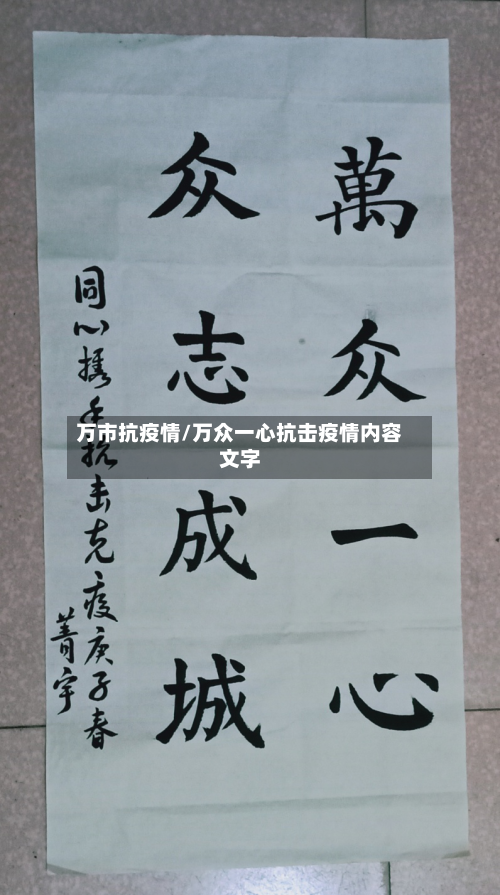 萬众一心
众志成城
同心携手抗击克疫庚子春
菁宇
万市抗疫情/万众一心抗击疫情内容
文字